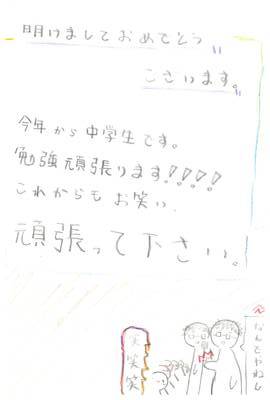 明けましておめでとう
ございます。
今年から中学生です。
勉強頑張ります!!!!
これからもお笑い
頑張って下さい。
なんでやねん
笑笑笑